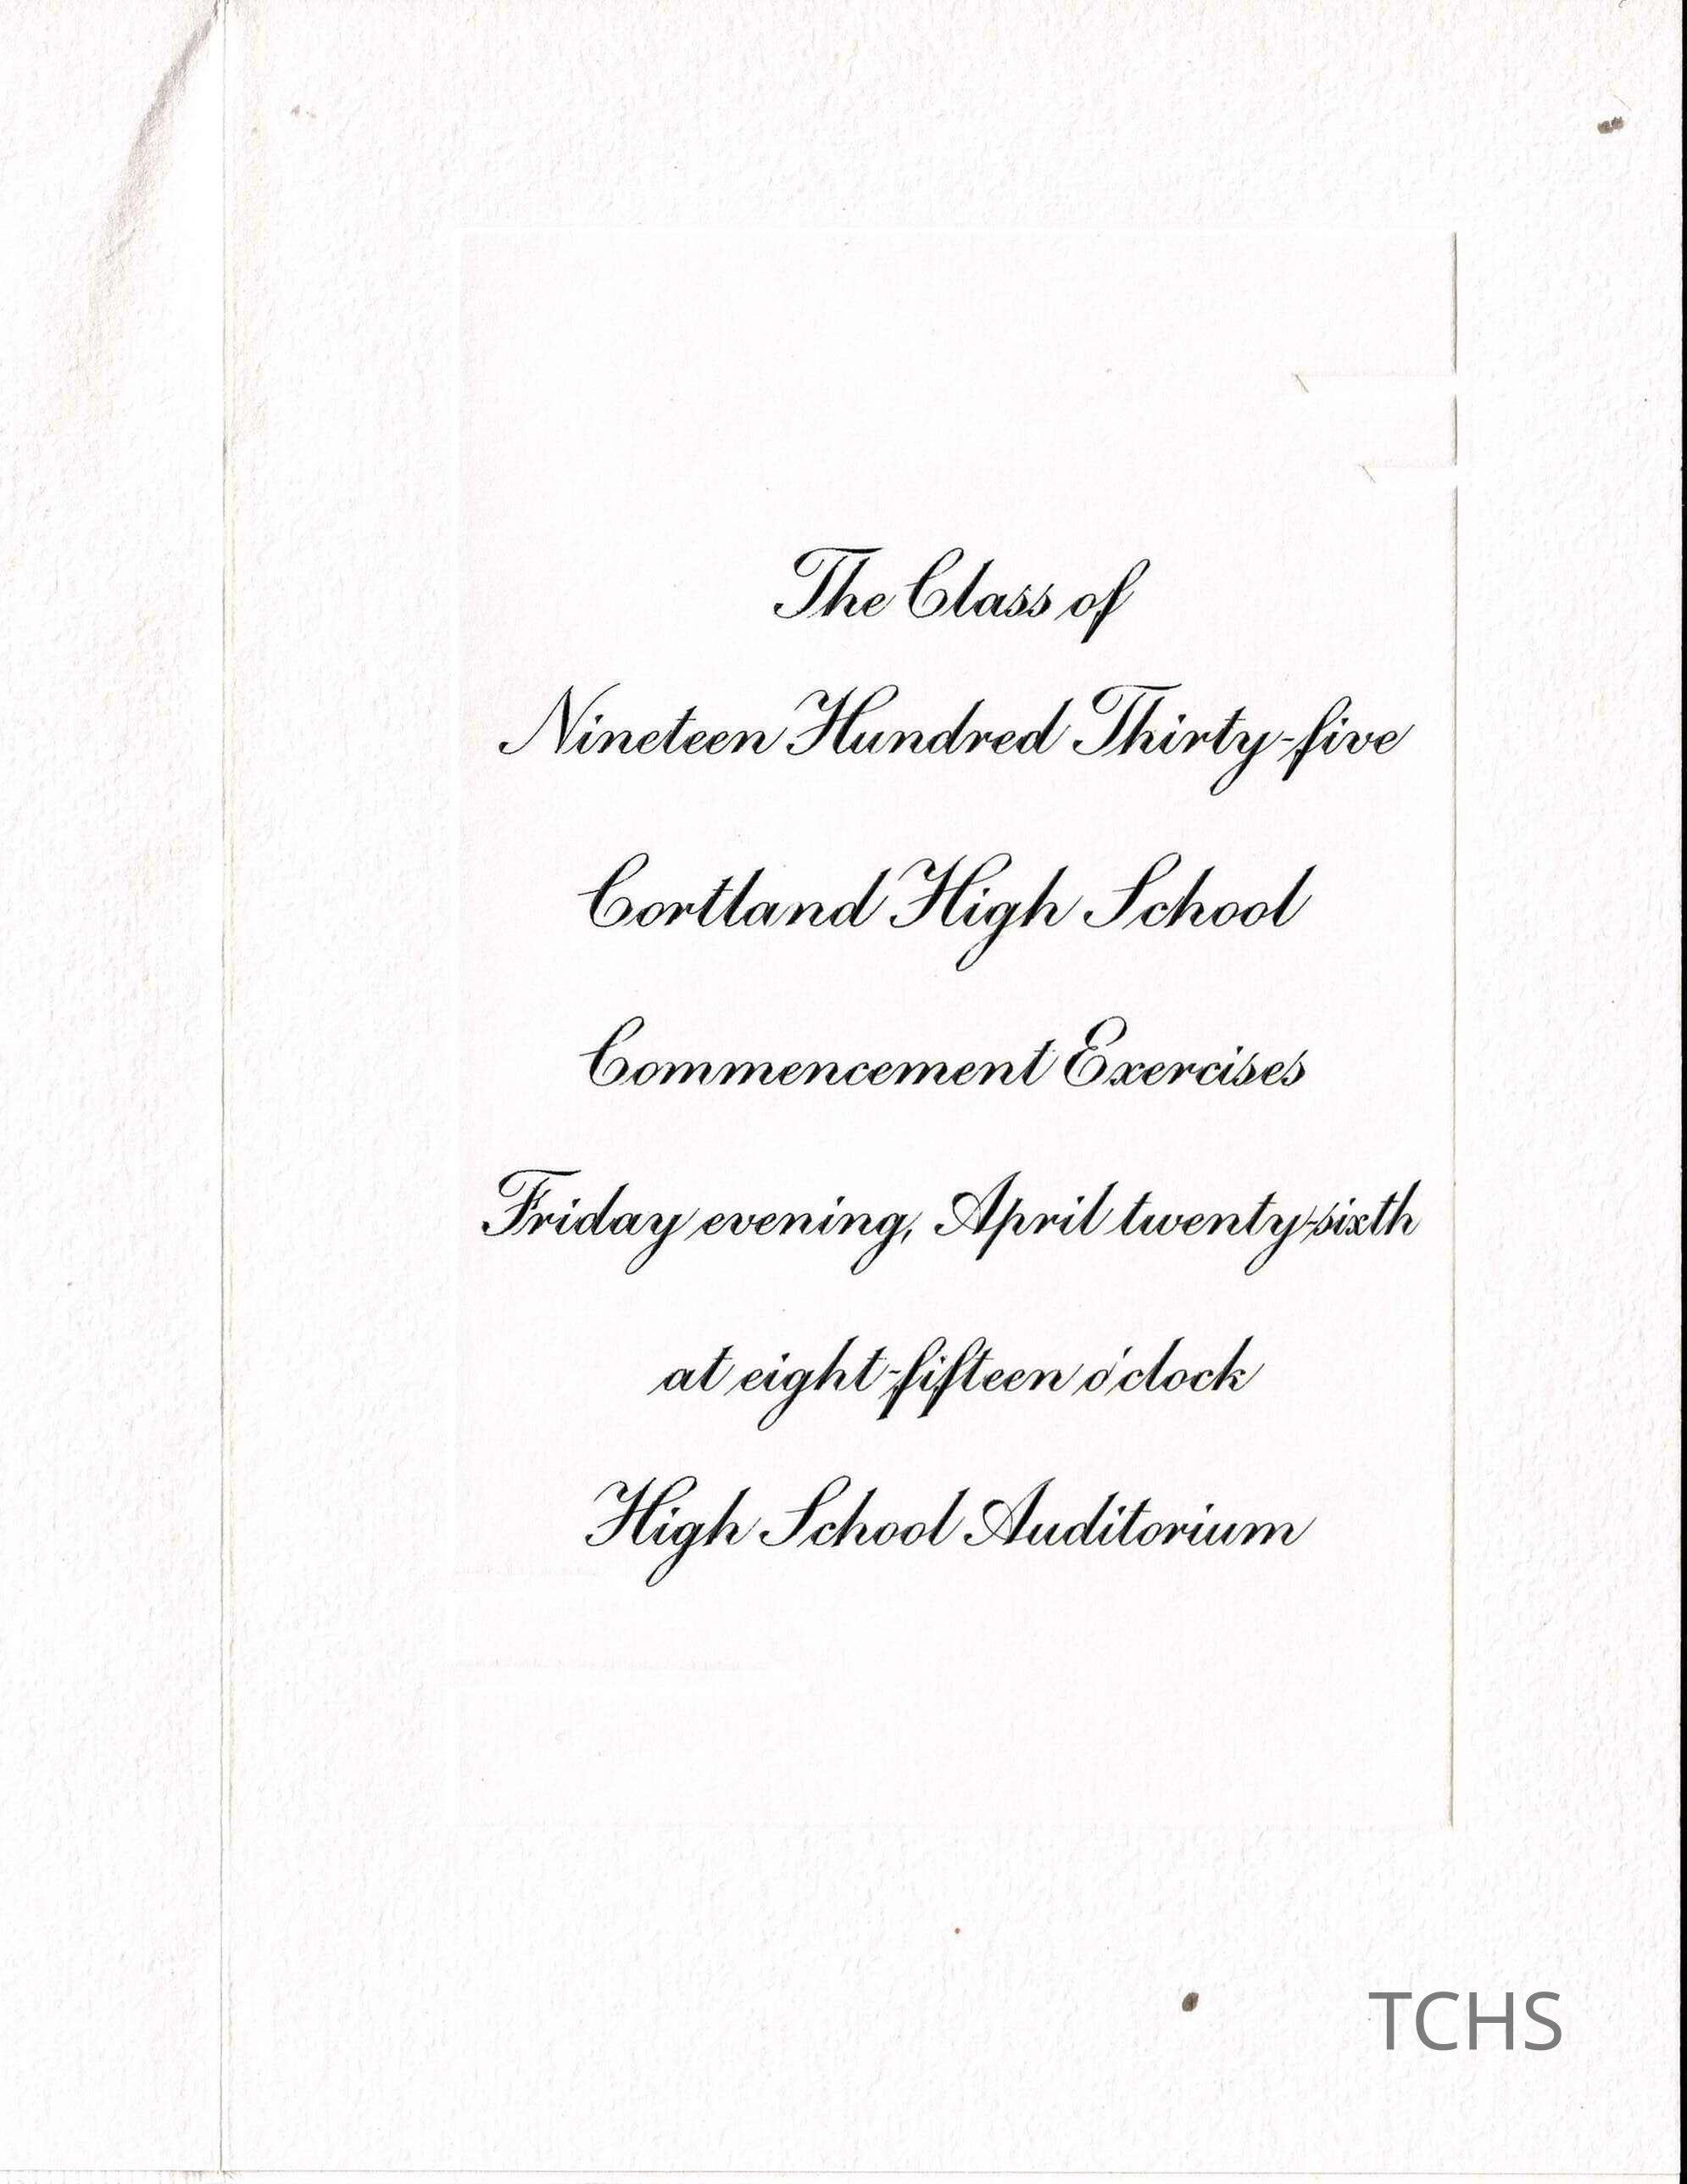 The Class of
Nineteen Hundred Thirty-five
Cortland High School
Commencement Exercises
Friday evening, April twenty-sixth
at eight-fifteen o'clock
High School Auditorium
TCHS